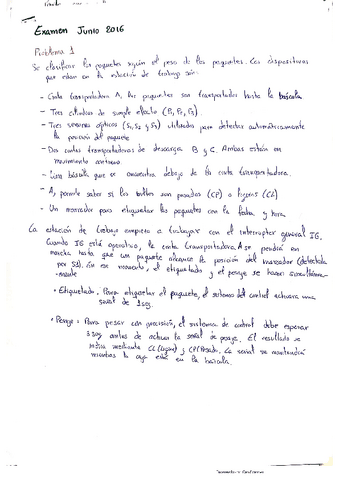 Examen Junio 2016
Problema 1
Se clasifican los paquetes según el peso de los paquetes. Los dispositivos
que están en la estación de trabajo son:
- Cinta transportadora A, los paquetes son transportados hasta la báscula
- Tres cilindros de simple efecto (P1, P2, P3).
- Tres sensores ópticos (S1, S2 y S3) utilizados para detectar automáticamente
la posición del paquete
- Dos cintas transportadoras de descarga B y C. Ambas están en
movimiento continuo
- Una báscula que se encuentra debajo de la cinta transportadora.
- A, permite saber si los bultos son pesados (CP) o ligeros (CL)
- Un marcador para etiquetar los paquetes con la fecha y hora
La estación de trabajo empieza a trabajar con el interruptor general IG.
Cuando IG está operativo, la cinta transportadora A se pondrá en
marcha hasta que un paquete alcance la posición del marcador (detectada
por S1). En ese momento, el etiquetado y el pesaje se hacen simultánea-
-mente
• Etiquetado: Para etiquetar el paquete, el sistema de control activará una
señal de 1 seg.
• Pesaje: Para pesar con precisión, el sistema de control debe esperar
3 seg antes de activar la señal de pesaje. El resultado se
mediante CL (Ligero) y CP (Pesado. La señal se mantendrá
mientras la caja esté en la báscula.